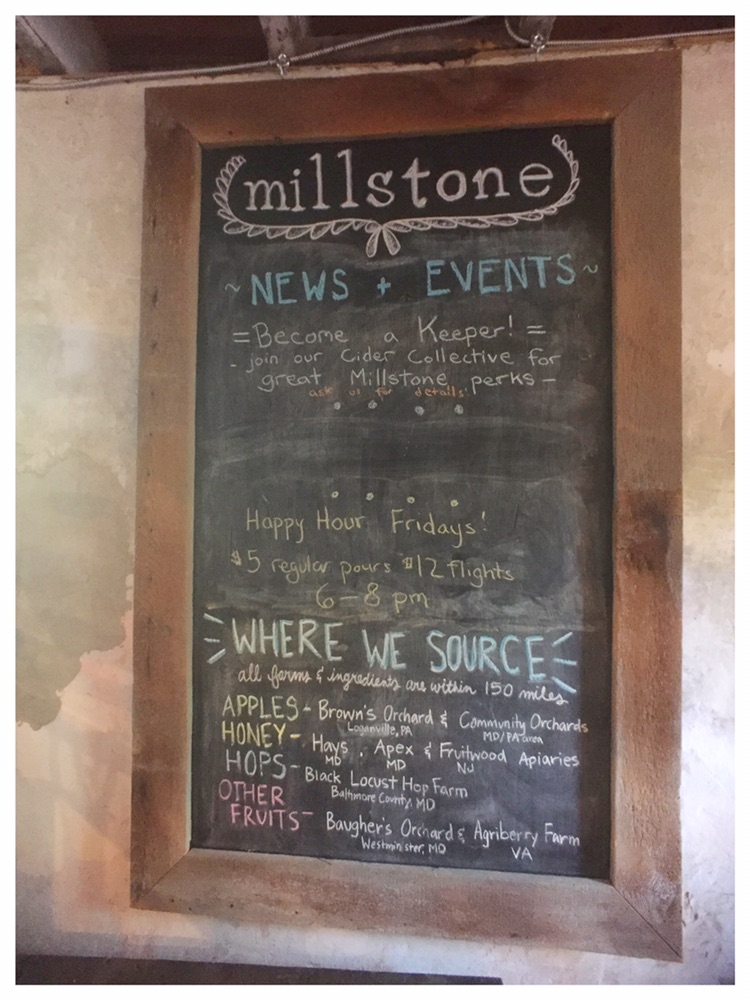 millstone
~ NEWS + EVENTS ~
= Become a Keeper! =
- join our Cider Collective for
great Millstone perks -
ask us for details!
Happy Hour Fridays!
$5 regular pours $12 flights
6-8 pm
WHERE WE SOURCE
all farms & ingredients are within 150 miles
APPLES - Brown's Orchard & Community Orchards
Loganville, PA MD/PA area
HONEY - Hays, Apex & Fruitwood Apiaries
MD MD NJ
HOPS - Black Locust Hop Farm
Baltimore County, MD
OTHER
FRUITS - Baugher's Orchard & Agriberry Farm
Westminster, MD VA